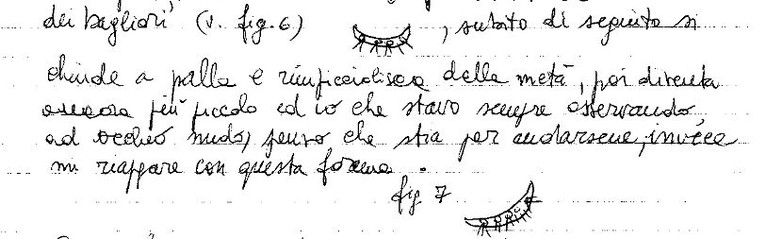 dei bagliori (v. fig. 6) , subito di seguito si
chiude a palla e rimpicciolisce della metà, poi diventa
ancora più piccolo ed io che stavo sempre osservando,
ad occhio nudo, penso che stia per andarsene, invece
mi riappare con questa forma.
fig 7